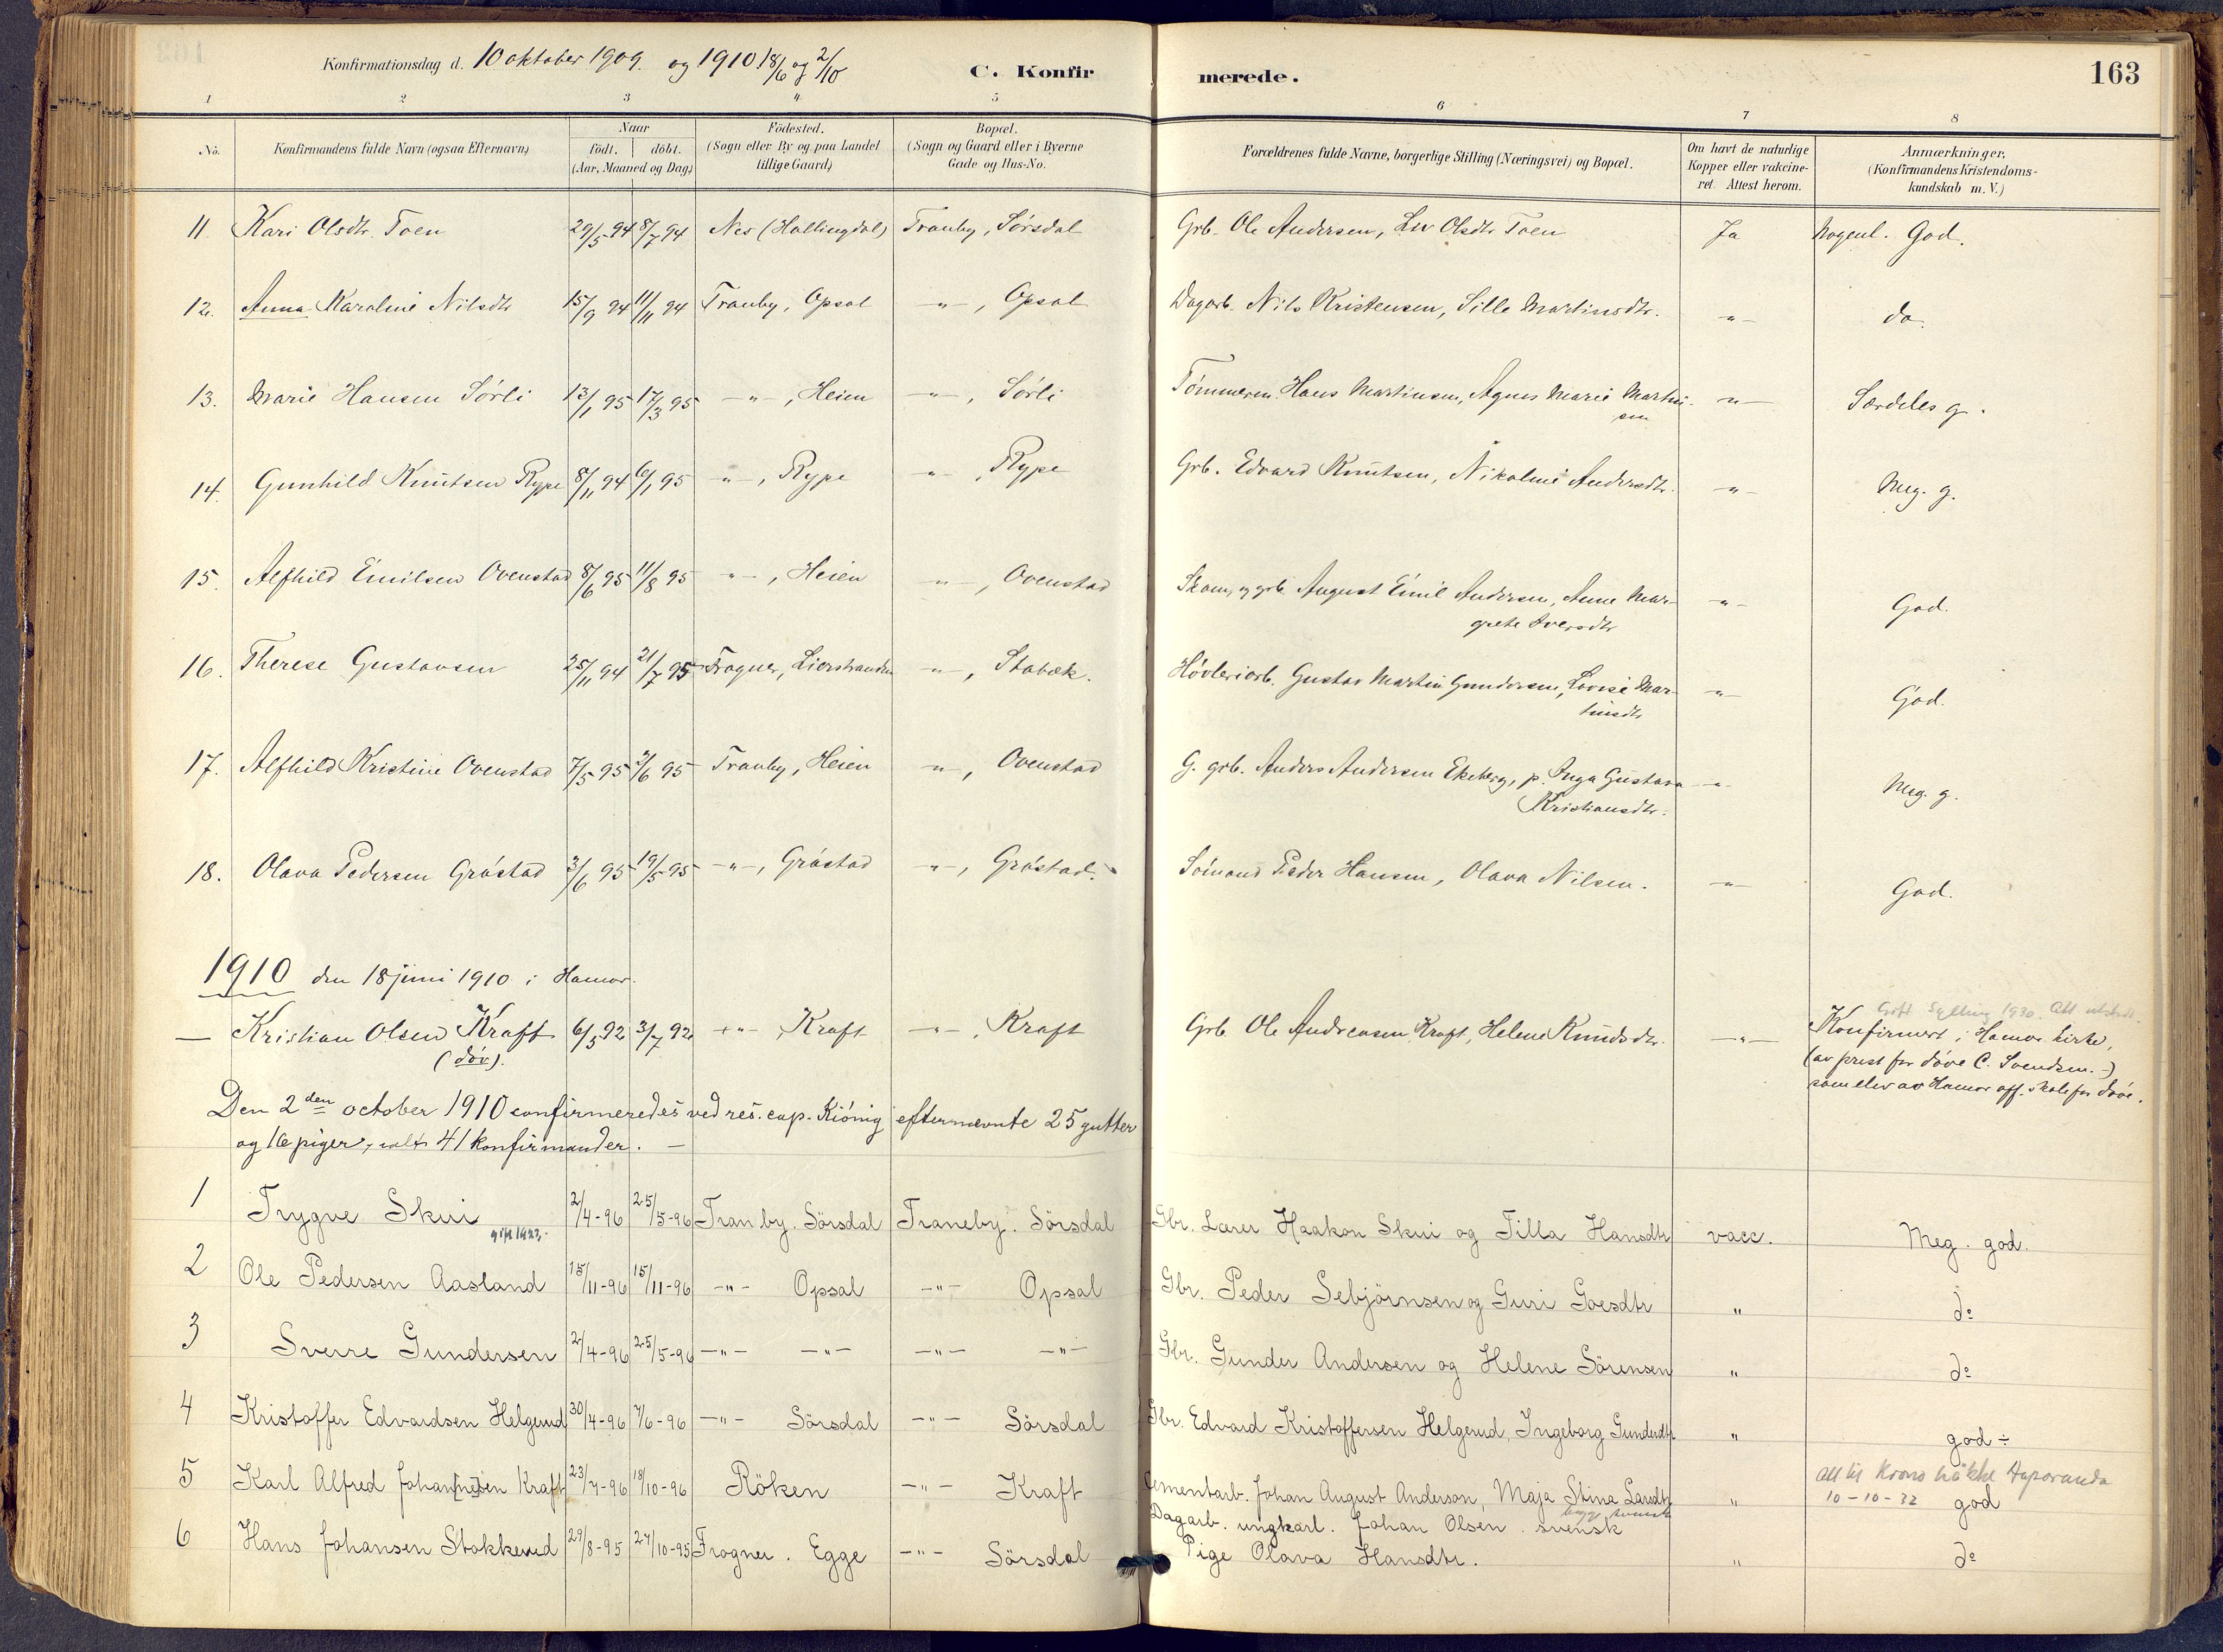 Konfirmationsdag d. 10 oktober 1909. og 1910 18/6 og 2/10
C. Konfirmerede.
163
1 2 3 4 5 6 7 8
No. Konfirmandens fulde Navn (ogsaa Efternavn) Naar födt. döbt. (Aar, Maaned og Dag) Födested. (Sogn eller By og paa Landet tillige Gaard) Bopæl. (Sogn og Gaard eller i Byerne Gade og Hus-No. Forældrenes fulde Navne, borgerlige Stilling (Næringsvei) og Bopæl. Om havt de naturlige Kopper eller vakcineret. Attest herom. Anmærkninger, (Konfirmandens Kristendomskundskab m. V.)
11 Kari Olsdtr. Toen 29/5 94 8/7 94 Nes (Hallingdal) Tranby, Sørsdal Grb. Ole Andersen, Liv Olsdtr. Toen Ja Nogenl. God.
12. Anna Karoline Nilsdtr 15/9 94 11/11 94 Tranby, Opsal -"-, Opsal Dagarb. Nils Kristensen, Sille Martinsdtr. -"- do.
13. Marie Hansen Sørli 13/1 95 17/3 95 -"-, Heien -"-, Sørli Tømmerm. Hans Martinsen, Agnes Marie Martinsen -"- Særdeles g.
14. Gunhild Knutsen Rype 8/11 94 6/1 95 -"-, Rype -"-, Rype Grb. Edvard Knutsen, Nikoline Andersdtr. -"- Meg. g.
15. Alfhild Emilsen Ovenstad 8/6 95 11/8 95 -"-, Heien -"-, Ovenstad Skom. og grb. August Emil Andersen, Anne Margrete Iversdtr -"- God.
16. Therese Gustavsen 25/11 94 21/7 95 Frogner, Lierstranden -"-, Stabæk. Høvleriarb. Gustav Martin Gundersen, Lovise Martinsdtr -"- God.
17. Alfhild Kristine Ovenstad 7/5 95 3/6 95 Tranby, Heien -"-, Ovenstad G. grb. Anders Andersen Ekeberg, p. Inga Gustava Kristiansdtr. -"- Meg. g.
18. Olava Pedersen Gråstad 3/6 95 19/5 95 -"-, Gråstad -"-, Gråstad. Sømand Peder Hansen, Olava Nilsen. -"- God.
1910 den 18 juni 1910 i Hamar.
— Kristian Olsen Kraft (døv). 6/5 92 3/7 92 -"- , Kraft -"- , Kraft Grb. Ole Andreasen Kraft, Helene Knudsdtr. -"- Gift Sylling 1930. Att utstedt.
Konfirmert i Hamar kirke,
(av prest for døve C. Svendsen.-)
som elev av Hamar off. skole for døve.
Den 2den october 1910 confirmeredes ved res. cap. Kiönig efternevnte 25 gutter
og 16 piger, ialt 41 konfirmander. —
1 Trygve Skui gift 1923. 2/4-96 25/5-96 Tranby. Sörsdal Traneby. Sörsdal Gbr. Lærer Haakon Skui og Tilla Hansdtr vacc. Meg. god.
2 Ole Pedersen Aasland 15/11-96 15/11-96 -"- Opsal -"- Opsal Gbr. Peder Sebjörnsen og Guri Goesdtr " do
3 Sverre Gundersen 2/4-96 25/5-96 -"- -"- -"- -"- Gbr. Gunder Andersen og Helene Sörensen " do
4 Kristoffer Edvardsen Helgerud 30/4-96 7/6-96 -"- Sörsdal -"- Sörsdal Gbr. Edvard Kristoffersen Helgerud, Ingeborg Gundersdtr " god ÷
5 Karl Alfred Johan[ne]sen Kraft 23/7-96 18/10-96 Röken -"- Kraft Cementarb. Johan August Anderson, Maja Stina Larsdtr begge svensk " att til Haparanda 10-10-32 god
6 Hans Johansen Stokkerud 29/8-95 27/10-95 Frogner. Egge -"- Sörsdal Dagarb. ungkarl. Johan Olsen. svensk
Pige Olava Hansdtr. " do